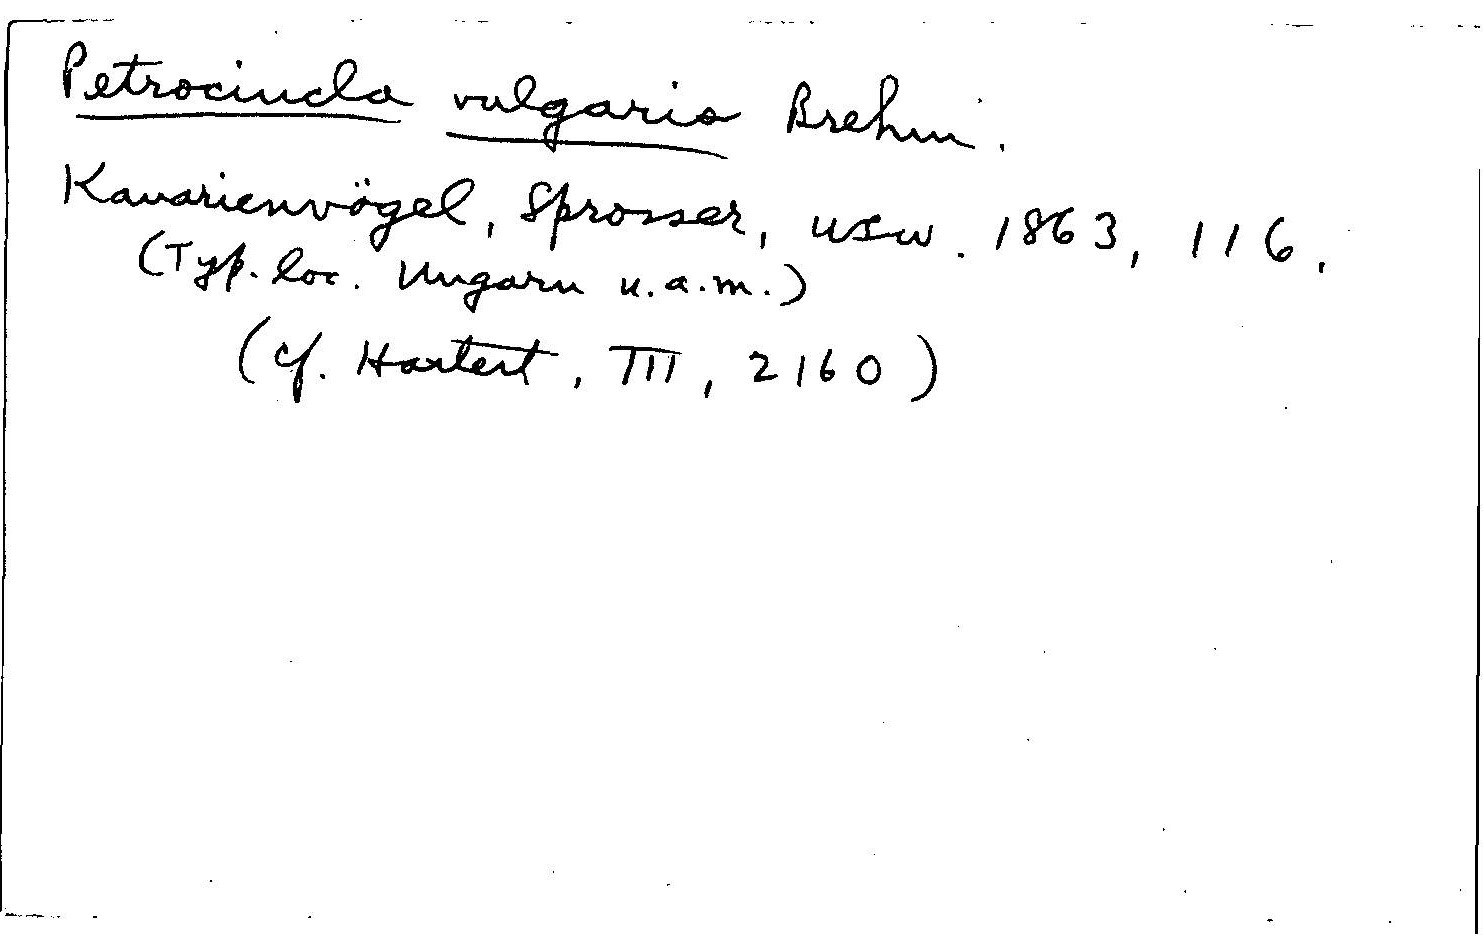 Petrocincla vulgaris Brehm.
Kanarienvögel, Sprosser, usw. 1863, 116.
(Typ. loc. Ungarn u.a.m.)
(cf. Hartert, III, 2160)